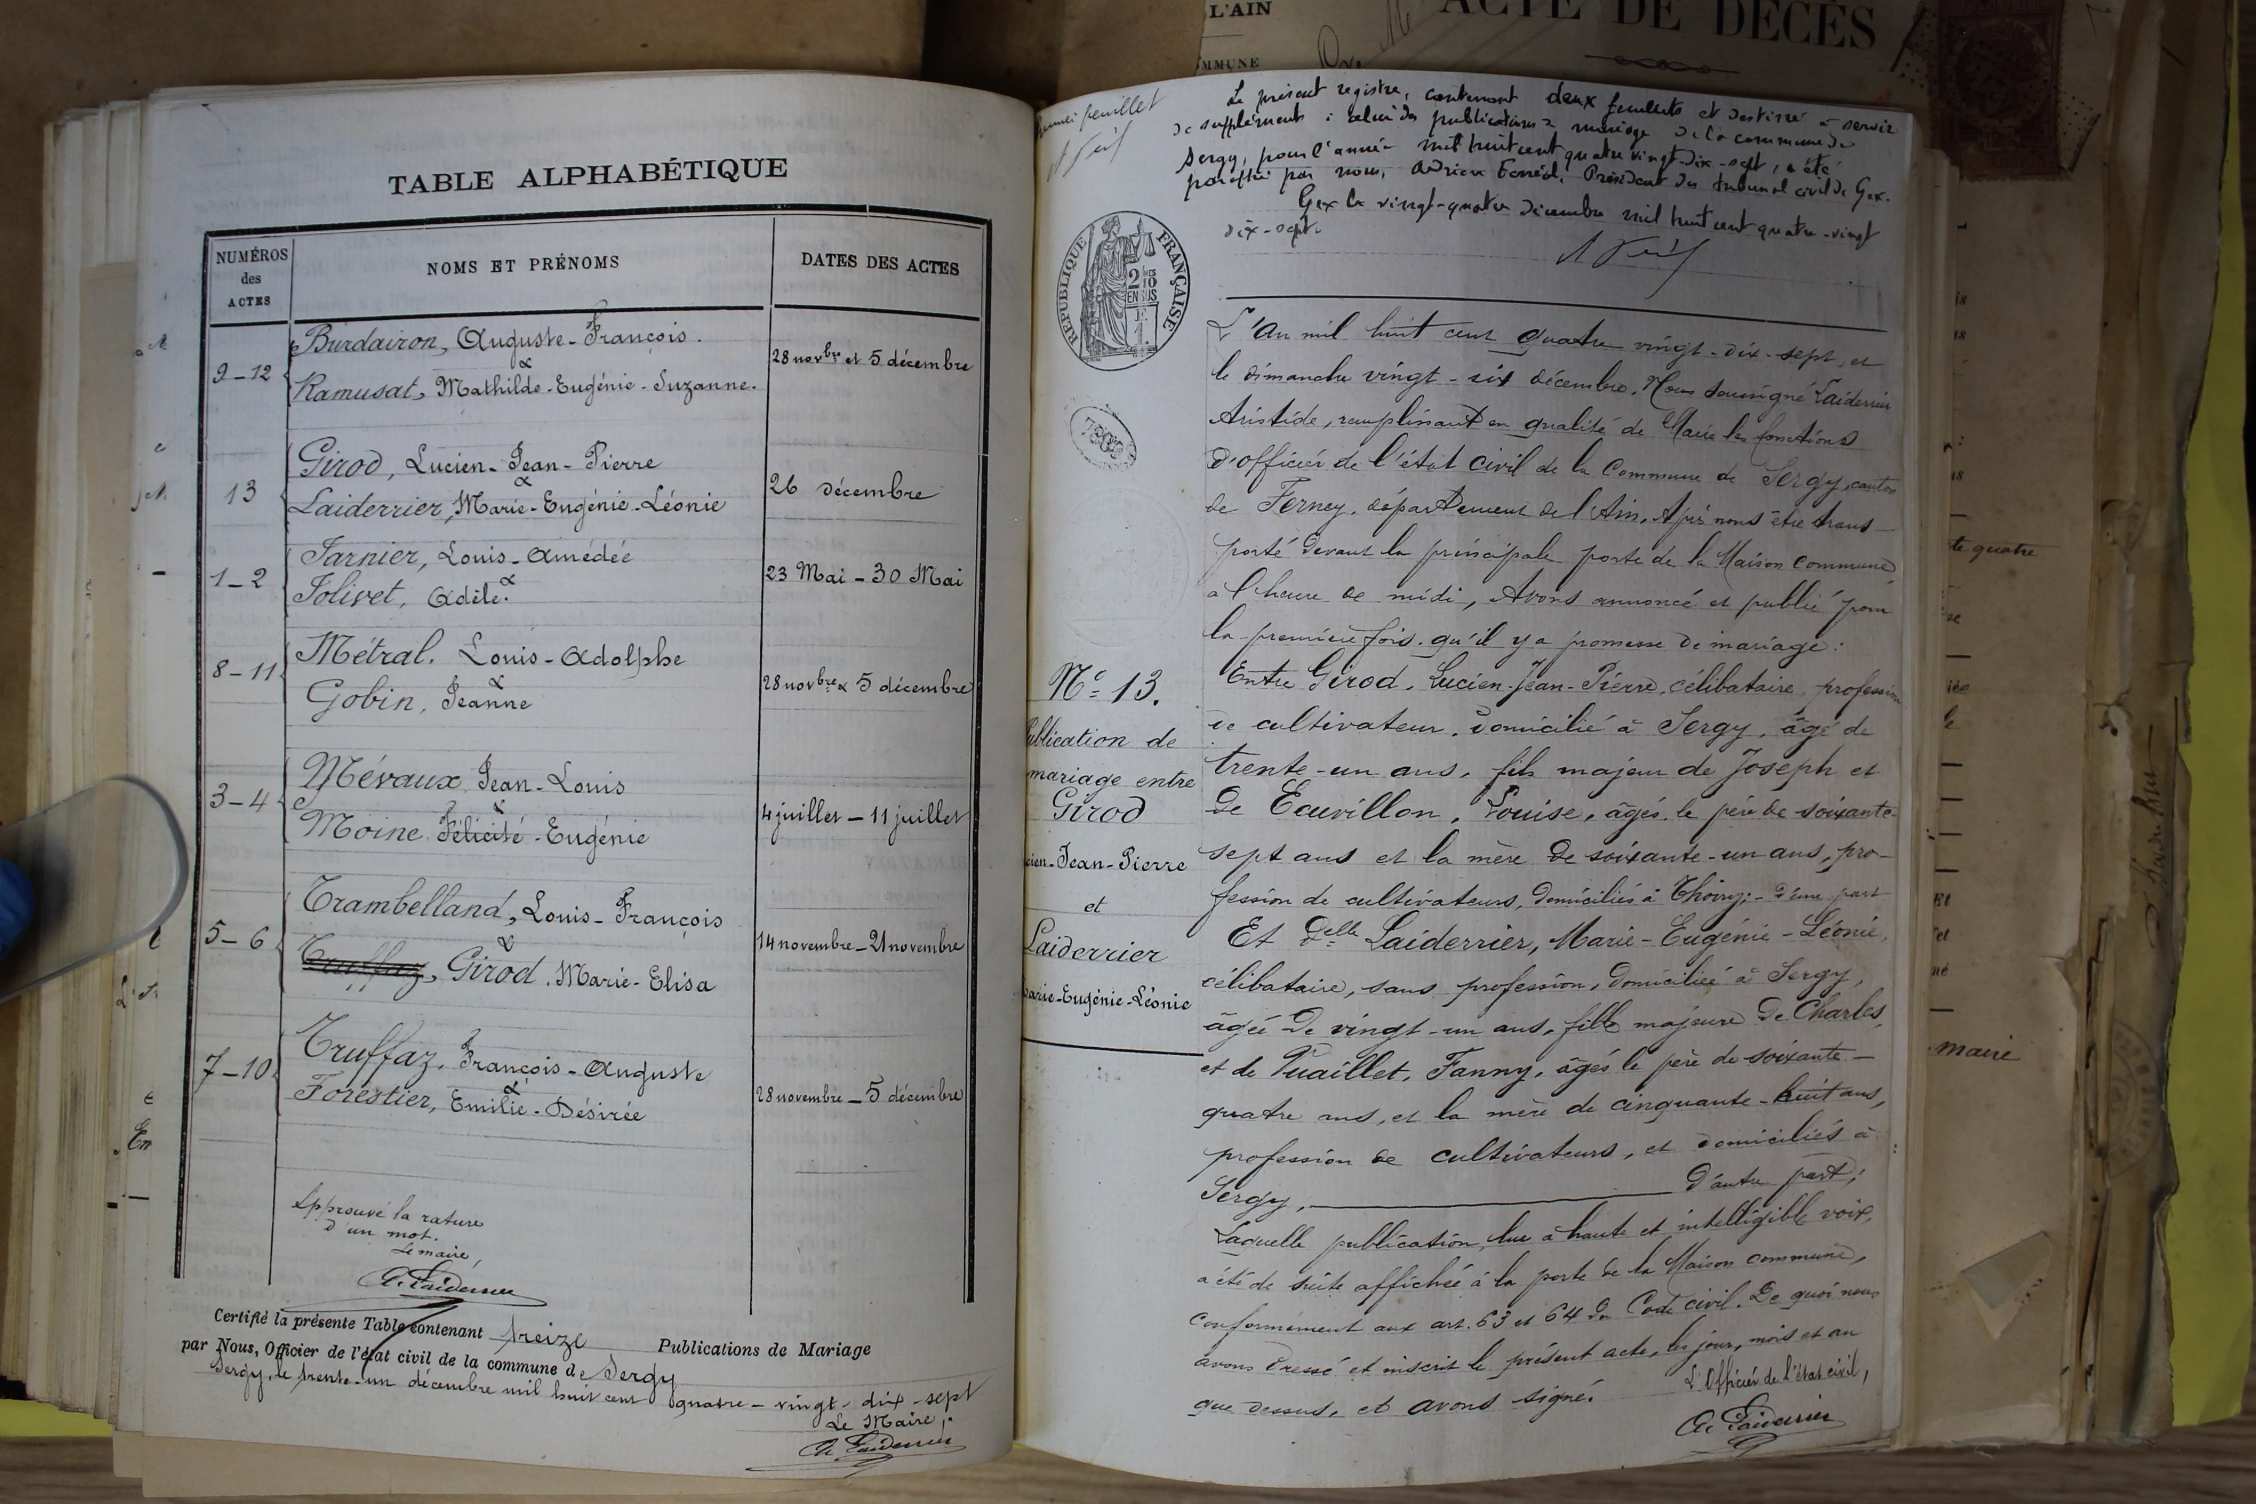 L'AIN
ACTE DE DÉCÈS
MMUNE
TABLE ALPHABÉTIQUE
NUMÉROS
des
ACTES
NOMS ET PRÉNOMS
DATES DES ACTES
Burdairon, Auguste-François.
&
9-12
28 novbre et 5 décembre
Ramusat, Mathilde-Eugénie-Suzanne.
Girod, Lucien-Jean-Pierre
&
13
26 décembre
Laiderrier, Marie-Eugénie-Léonie
Jarnier, Louis-Amédée
&
1-2
23 Mai - 30 Mai
Jolivet, Adèle.
Métral. Louis-Adolphe
&
8-11
28 novbre & 5 décembre
Gobin, Jeanne
Mévaux Jean-Louis
&
3-4
4 juillet - 11 juillet
Moine Félicité-Eugénie
Trambelland, Louis-François
&
5-6
14 novembre - 21 novembre
Truffaz, Girod. Marie-Elisa
Truffaz. François-Auguste
&
7-10
28 novembre - 5 décembre
Forestier, Emilie-Désirée
Approuvé la rature
d'un mot.
Le maire,
A. Laiderrier
Certifié la présente Table contenant treize Publications de Mariage
par Nous, Officier de l'état civil de la commune de Sergy
Sergy, le trente-un décembre mil huit cent quatre-vingt-dix-sept
Le Maire,
A. Laiderrier
feuillet
Le présent registre, contenant deux feuillets et destiné à servir
de suppléments à celui des publications de mariage de la commune de
Sergy, pour l'année mil huit cent quatre vingt-dix-sept, a été
paraphé par nous, Président du tribunal civil de Gex.
Gex le vingt-quatre décembre mil huit cent quatre-vingt
dix-sept.
RÉPUBLIQUE FRANÇAISE
L'An mil huit cent quatre vingt-dix-sept, et
le dimanche vingt-six décembre. Nous soussigné Laiderrier
Aristide, remplissant en qualité de Maire les fonctions
d'officier de l'état civil de la Commune de Sergy, canton
de Ferney, département de l'Ain, Après nous être trans-
porté devant la principale porte de la Maison commune,
à l'heure de midi, Avons annoncé et publié pour
la première fois qu'il y a promesse de mariage:
No 13.
Publication de
mariage entre
Girod
cien-Jean-Pierre
et
Laiderrier
arie-Eugénie-Léonie
Entre Girod, Lucien-Jean-Pierre, célibataire, profession
de cultivateur, domicilié à Sergy, âgé de
trente-un ans, fils majeur de Joseph et
de Ecuvillon, Louise, âgés, le père de soixante-
sept ans et la mère de soixante-un ans, pro-
fession de cultivateurs, domiciliés à Thoiry;- d'une part
Et Delle Laiderrier, Marie-Eugénie-Léonie,
célibataire, sans profession, domiciliée à Sergy,
âgée de vingt-un ans, fille majeure de Charles,
et de Vuaillet, Fanny, âgés le père de soixante-
quatre ans, et la mère de cinquante-huit ans,
profession de cultivateurs, et domiciliés à
Sergy, d'autre part;
Laquelle publication, lue à haute et intelligible voix,
a été de suite affichée à la porte de la Maison commune,
conformément aux art. 63 et 64 du Code civil. De quoi nous
avons dressé et inscrit le présent acte, les jour, mois et an
que dessus, et avons signé.
L'Officier de l'état civil,
A. Laiderrier
te quatre
maire